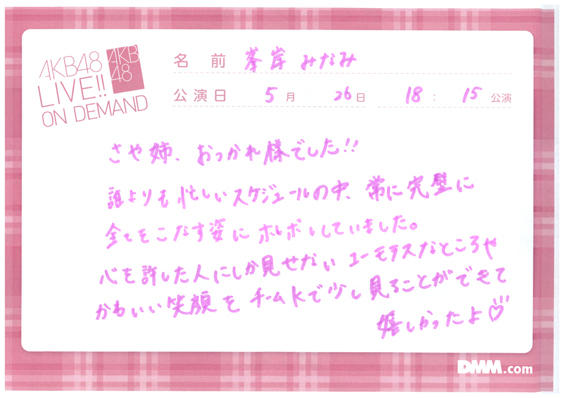 AKB48
LIVE!!
ON DEMAND
AKB
48
名 前 峯岸 みなみ
公演日 5月 26日 18:15公演
さや姉、おつかれ様でした!!
誰よりも忙しいスケジュールの中、常に完璧に
全てをこなす姿にホレボレしていました。
心を許した人にしか見せない ユーモラスなところや
かわいい笑顔を チームKで少し見ることができて
嬉しかったよ♡
DMM.com